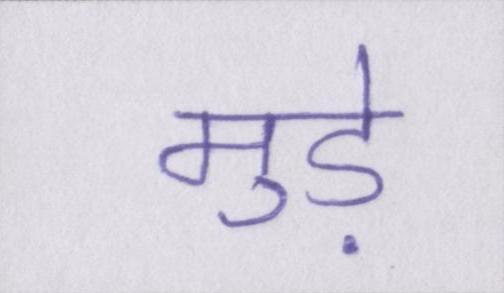 मुड़े